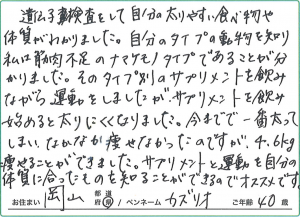 遺伝子検査をして自分の太りやすい食べ物や
体質がわかりました。自分のタイプの動物を知り
私は筋肉不足のナマケモノタイプであることが分
かりました。そのタイプ別のサプリメントを飲み
ながら運動をしましたが、サプリメントを飲み
始めると太りにくくなりました。今までで一番太って
しまい、なかなか痩せなかったのですが、4.6kg
痩せることができました。サプリメントと運動を自分の
体質に合ったものを知ることができるのでオススメです。
お住まい 岡山 都道府県 / ペンネーム カズリオ ご年齢 40歳